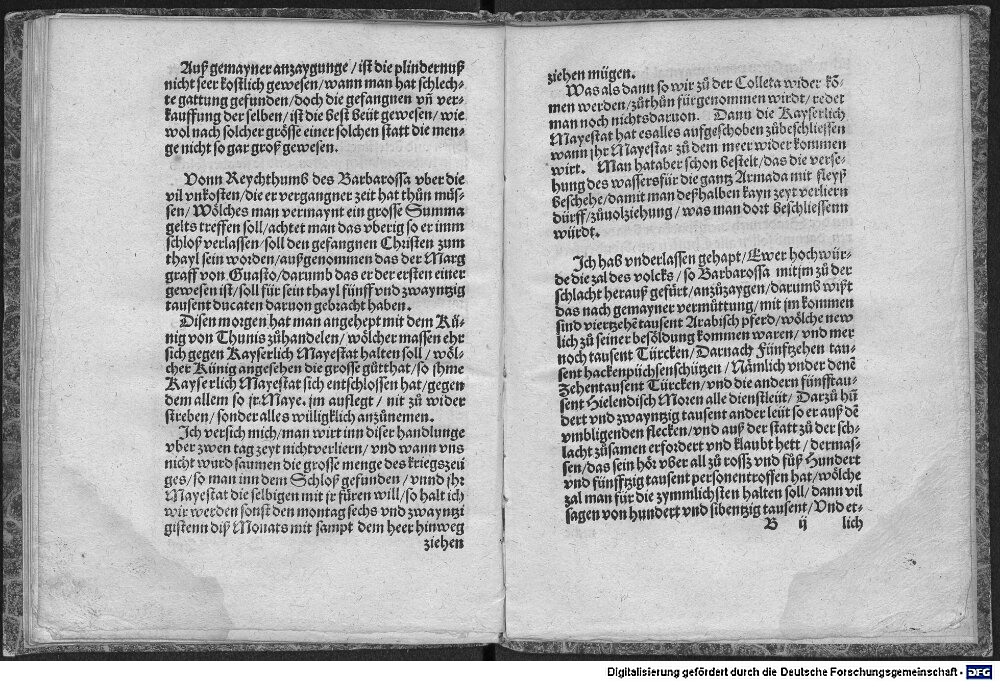 Auß gemayner anzaygunge / ist die plindernuß
nicht seer kostlich gewesen / wann man hat schlech-
te gattung gefunden / doch die gefangnen vñ ver-
kauffung der selben / ist die best beüt gewesen / wie
wol nach solcher grösse einer solchen statt die men-
ge nicht so gar groß gewesen.
Vonn Reychthumb des Barbarossa vber die
vil vnkosten / die er vergangner zeit hat thůn müs-
sen / Wölches man vermaynt ein grosse Summa
gelts treffen soll / achtet man das vberig so er imm
schloß verlassen / soll den gefangnen Christen zum
thayl sein worden / außgenommen das der Marg
graff von Guasto / darumb das er der ersten einer
gewesen ist / soll für sein thayl fünff vnd zwayntzig
tausent ducaten daruon gebracht haben.
Disen morgen hat man angehept mit dem Kü-
nig von Thunis zůhandelen / wölcher massen ehr
sich gegen Kayserlich Mayestat halten soll / wöl-
cher Künig angesehen die grosse gůtthat / so jhme
Kayserlich Mayestat sich entschlossen hat / gegen
dem allem so jr. Maye. jm auflegt / nit zů wider
streben / sonder alles williglich anzůnemen.
Ich versich mich / man wirt inn diser handlunge
vber zwen tag zeyt nicht verliern / vnd wann vns
nicht wurd saumen die grosse menge des kriegszeü
ges / so man inn dem Schloß gefunden / vnnd jhr
Mayestat die selbigen mit jr füren will / so halt ich
wir werden sonst den montag sechs vnd zwayntzi
gistenn diß Monats mit sampt dem heer hinweg
ziehen
ziehen mügen.
Was als dann so wir zů der Colleta wider kõ-
men werden / zůthůn fürgenommen wirdt / redet
man noch nichts daruon. Dann die Kayserlich
Mayestat hat es alles aufgeschoben zůbeschliessen
wann jhr Mayestat zů dem meer wider kommen
wirt. Man hat aber schon bestelt / das die verse-
hung des wassers für die gantz Armada mit fleyß
beschehe / damit man deßhalben kayn zeyt verliern
dürff / zůuolziehung / was man dort beschliessenn
würdt.
Ich hab vnderlassen gehapt / Ewer hochwür-
de die zal des volcks / so Barbarossa mit jm zů der
schlacht herauß gefürt / anzůzaygen / darumb wißt
das nach gemayner vermůttung / mit jm kommen
sind viertzehẽ tausent Arabisch pferd / wölche new
lich zů seiner besöldung kommen waren / vnd mer
noch tausent Türcken / Darnach Fünftzehen tau-
sent hackenpüchsenschützen / Nämlich vnder denẽ
Zehentausent Türcken / vnd die andern fünfftau-
sent Hielendisch Moren alle dienstleüt / Darzů hũ
dert vnd zwayntzig tausent ander leüt so er auß dẽ
vmbligenden flecken / vnd auß der statt zů der sch-
lacht zůsamen erfordert vnd klaubt hett / dermas-
sen / das sein hör vber all zů rossz vnd fůß Hundert
vnd fünfftzig tausent person etroffen hat / wölche
zal man für die zymmlichsten halten soll / dann vil
sagen von hundert vnd sibentzig tausent / Vnd et-
B ij lich
Digitalisierung gefördert durch die Deutsche Forschungsgemeinschaft - DFG